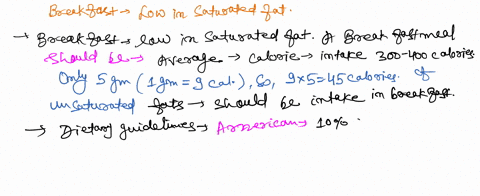 Breakfast → Low in Saturated fat.
→ Breakfast → low in Saturated fat. A Breakfast meal
Should be → Average → calorie → intake 300-400 calories
Only 5 gm (1gm = 9 cal.), So, 9x5=45 calories. of
unsaturated fats → should be intake in breakfast.
→ Dietary guidelines → American → 10%.